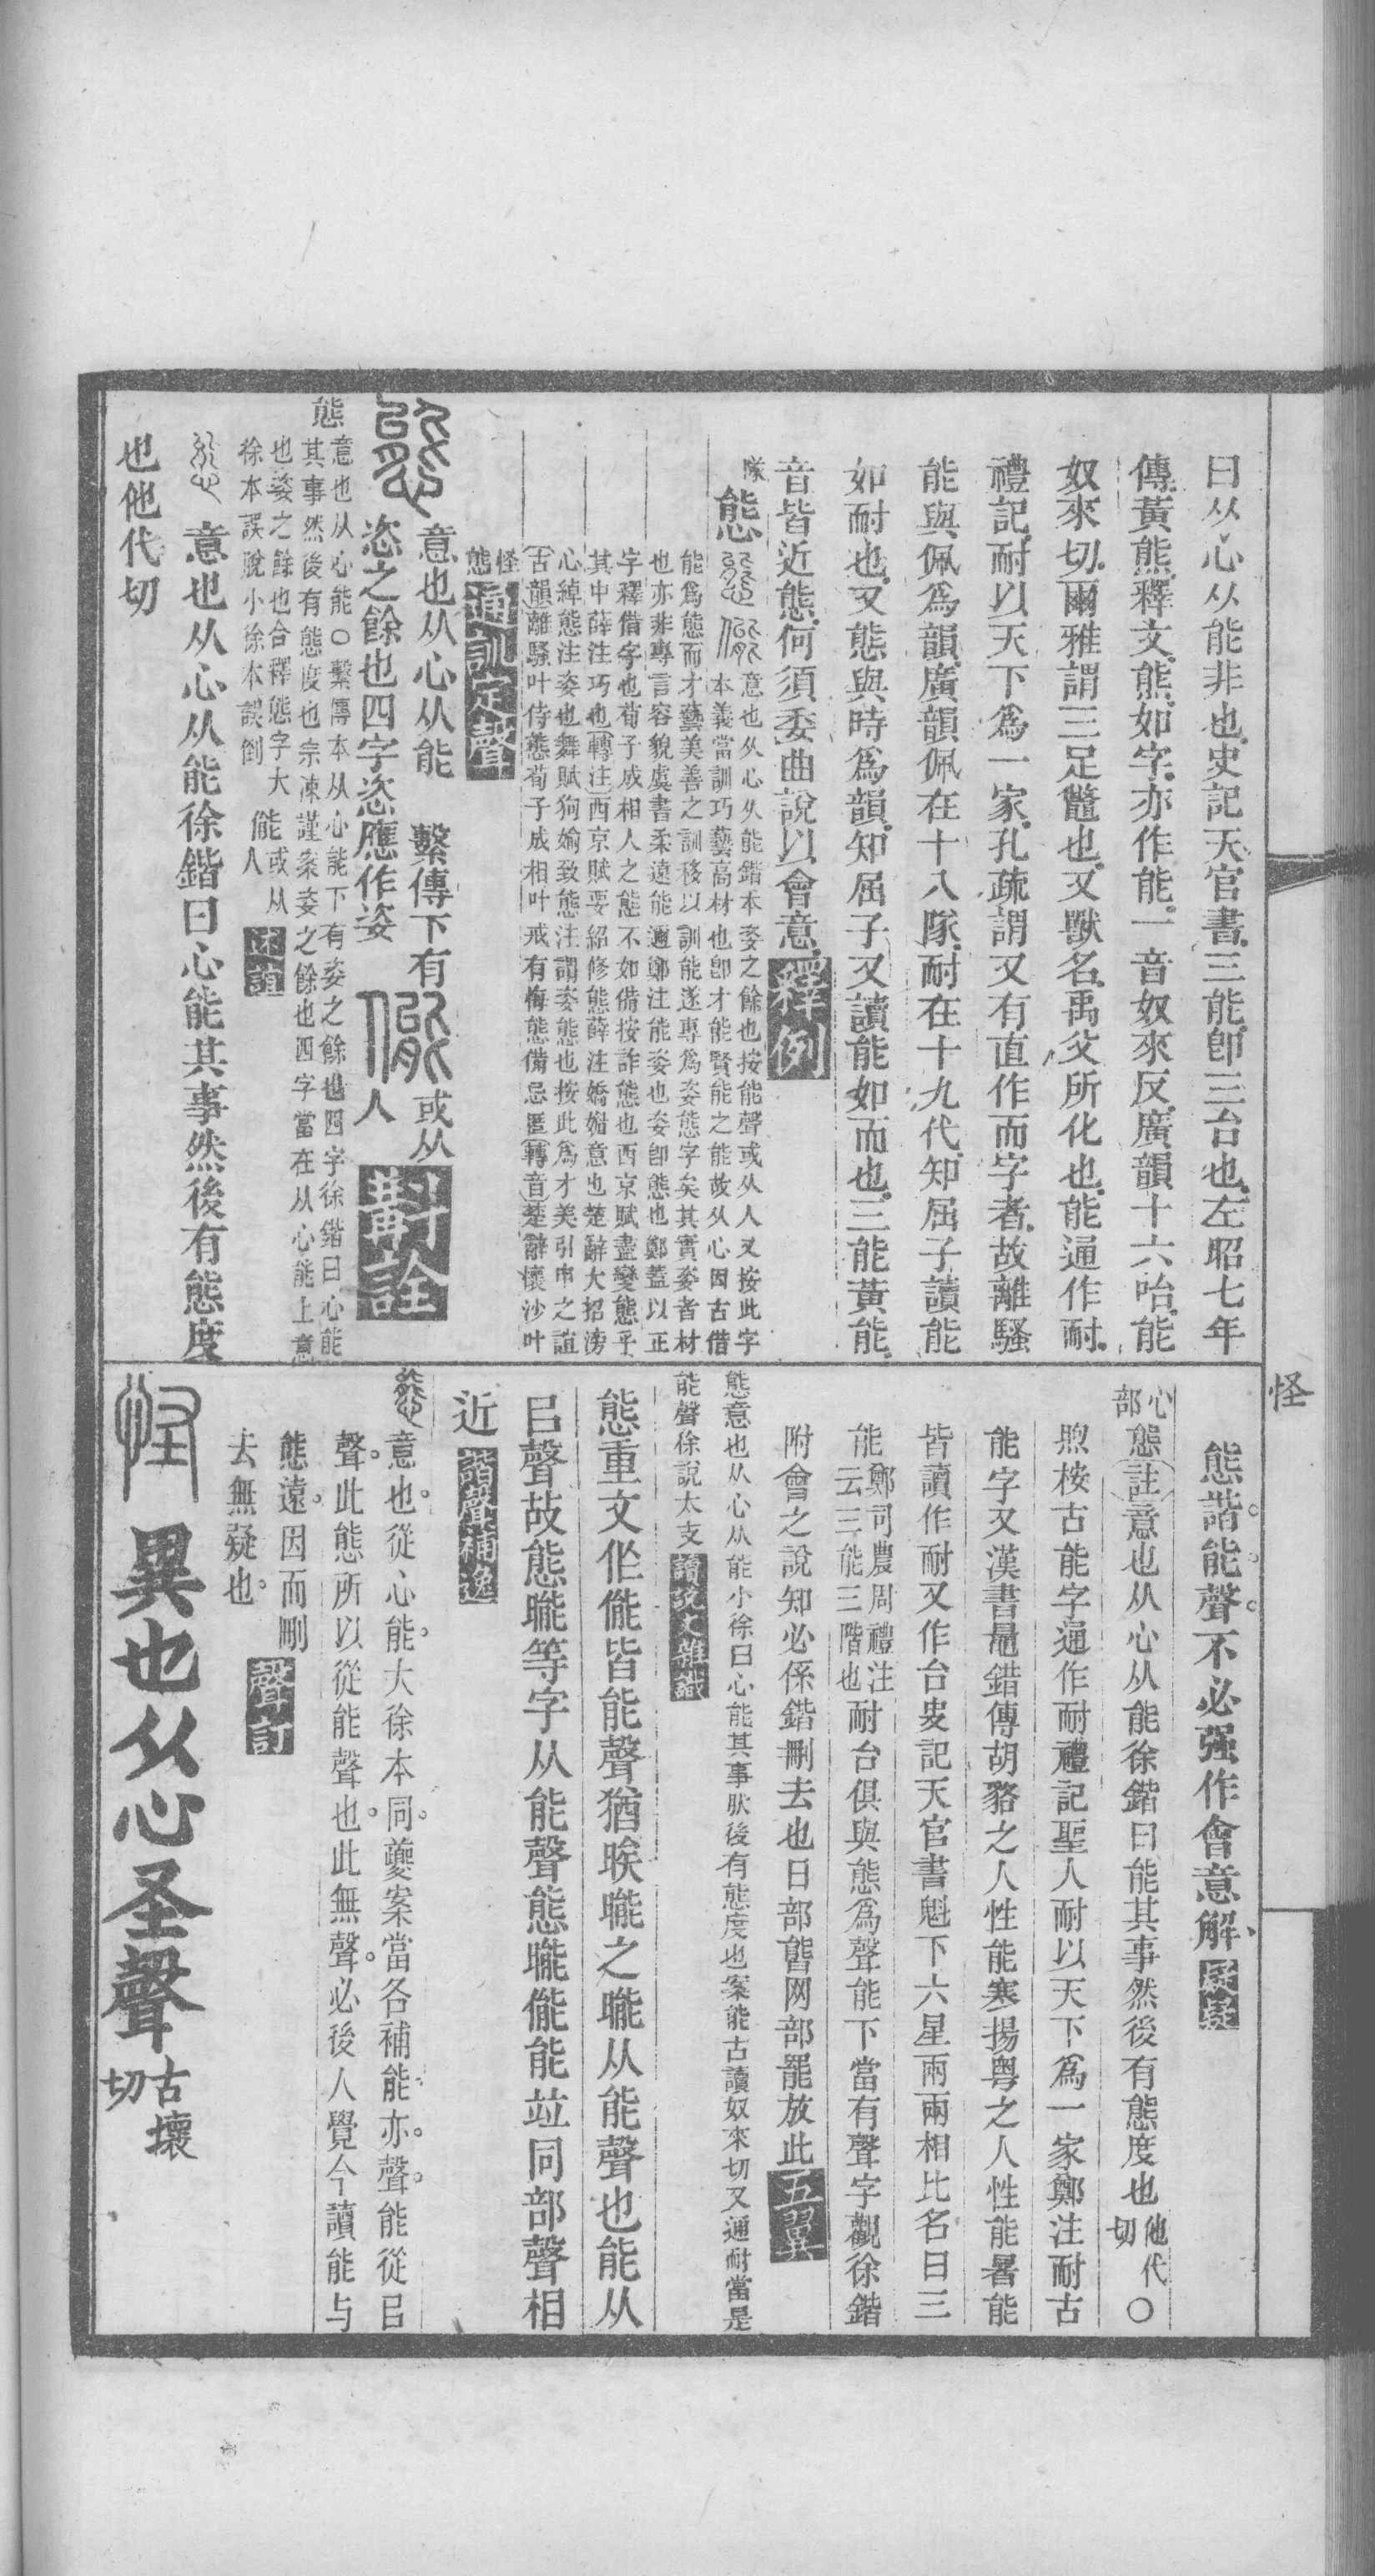 曰从心从能非也史記天官書三能卽三台也左昭七年
傳黃熊釋文熊如字亦作能一音奴來反廣韻十六咍能
奴來切爾雅謂三足鼈也又獸名禹父所化也能通作耐
禮記耐以天下爲一家孔疏謂又有直作而字者故離騷
能與佩爲韻廣韻佩在十八隊耐在十九代知屈子讀能
如耐也又態與時爲韻知屈子又讀能如而也三能黃能
音皆近態何須委曲說以會意釋例
隊
態意也从心从能鍇本姿之餘也按能聲或从人又按此字
本義當訓巧藝高材也卽才能賢能之能故从心因古借
能爲態而才藝美善之訓移以訓能遂專爲姿態字矣其實姿者材
也亦非專言容貌虞書柔遠能邇鄭注能姿也姿卽態也鄭蓋以正
字釋借字也荀子成相人之態不如備按詐態也西京賦盡變態乎
其中薛注巧也轉注西京賦要紹修態薛注嬌媚意也楚辭大招滂
心綽態注姿也舞賦狗媮致態注謂姿態也按此爲才美引申之誼
古韻離騷叶侍態荀子成相叶戒有悔態備忌匿轉音楚辭懷沙叶
怪
態通訓定聲
意也从心从能 繫傳下有
恣之餘也四字恣應作姿 或从
人斠詮
態意也从心能○繫傳本从心能下有姿之餘也四字徐鍇曰心能
其事然後有態度也宗涑謹案姿之餘也四字當在从心能上意
也姿之餘也合釋態字大
徐本誤脫小徐本誤倒 能或从
儓人述誼
意也从心从能徐鍇曰心能其事然後有態度
也他代切
怪
態諧能聲不必强作會意解疑疑
心
部態註意也从心从能徐鍇曰能其事然後有態度也他代切○
煦桉古能字通作耐禮記聖人耐以天下爲一家鄭注耐古
能字又漢書鼂錯傳胡貉之人性能寒揚粤之人性能暑能
皆讀作耐又作台史記天官書魁下六星兩兩相比名曰三
能鄭司農周禮注云三能三階也耐台俱與態爲聲能下當有聲字觀徐鍇
附會之說知必係鍇刪去也日部䏻网部罷放此五翼
態意也从心从能小徐曰心能其事狀後有態度也案能古讀奴來切又通耐當是
能聲徐說大支讀說文雜識
態重文作儓皆能聲猶暎曨之曨从能聲也能从
㠯聲故態曨等字从能聲態曨儓能竝同部聲相
近諧聲補逸
意也從心能大徐本同夔案當各補能亦聲能從㠯
聲此態所以從能聲也此無聲必後人覺今讀能与
態遠因而刪
去無疑也聲訂
異也从心圣聲古壞切